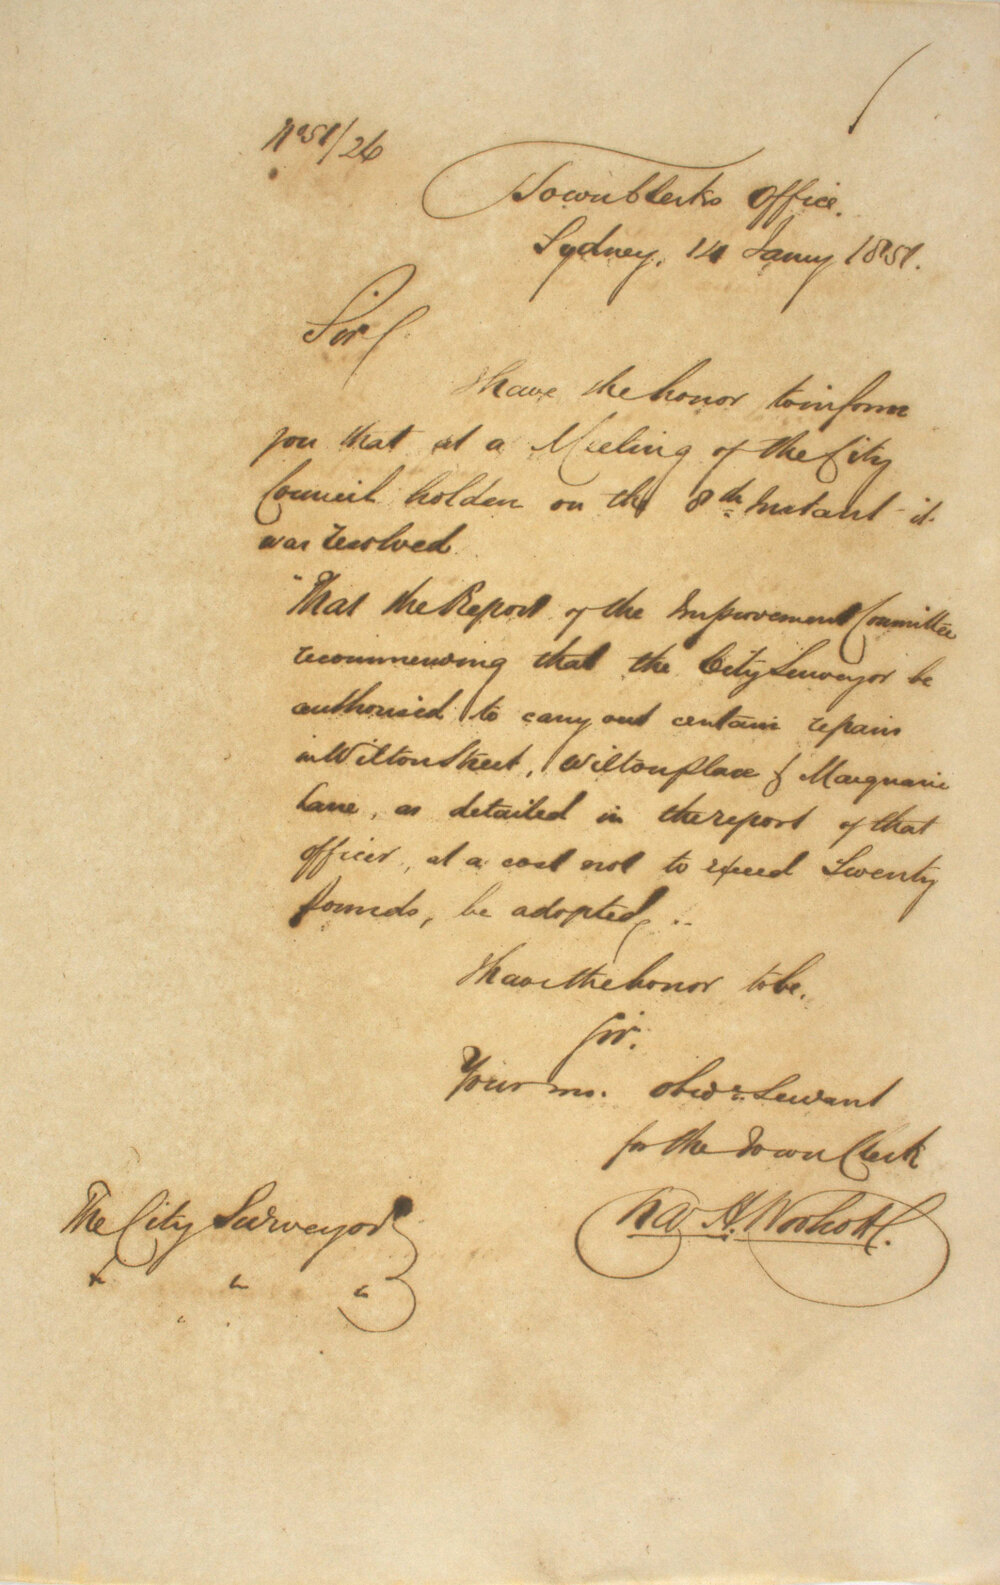 No 51/26
Town Clerks Office.
Sydney, 14 Jany 1851.
Sir
I have the honor to inform
you that at a Meeting of the City
Council holden on the 8th Instant it
was resolved
"That the Report of the Improvement Committee
recommending that the City Surveyor be
authorised to carry out certain repairs
in Wilton Street, Wilton place & Macquarie
Lane, as detailed in the report of that
officer, at a cost not to exceed Twenty
pounds, be adopted
I have the honor to be.
Sir.
Your mo. obedt. Servant
for the Town Clerk
The City Surveyor
" " "